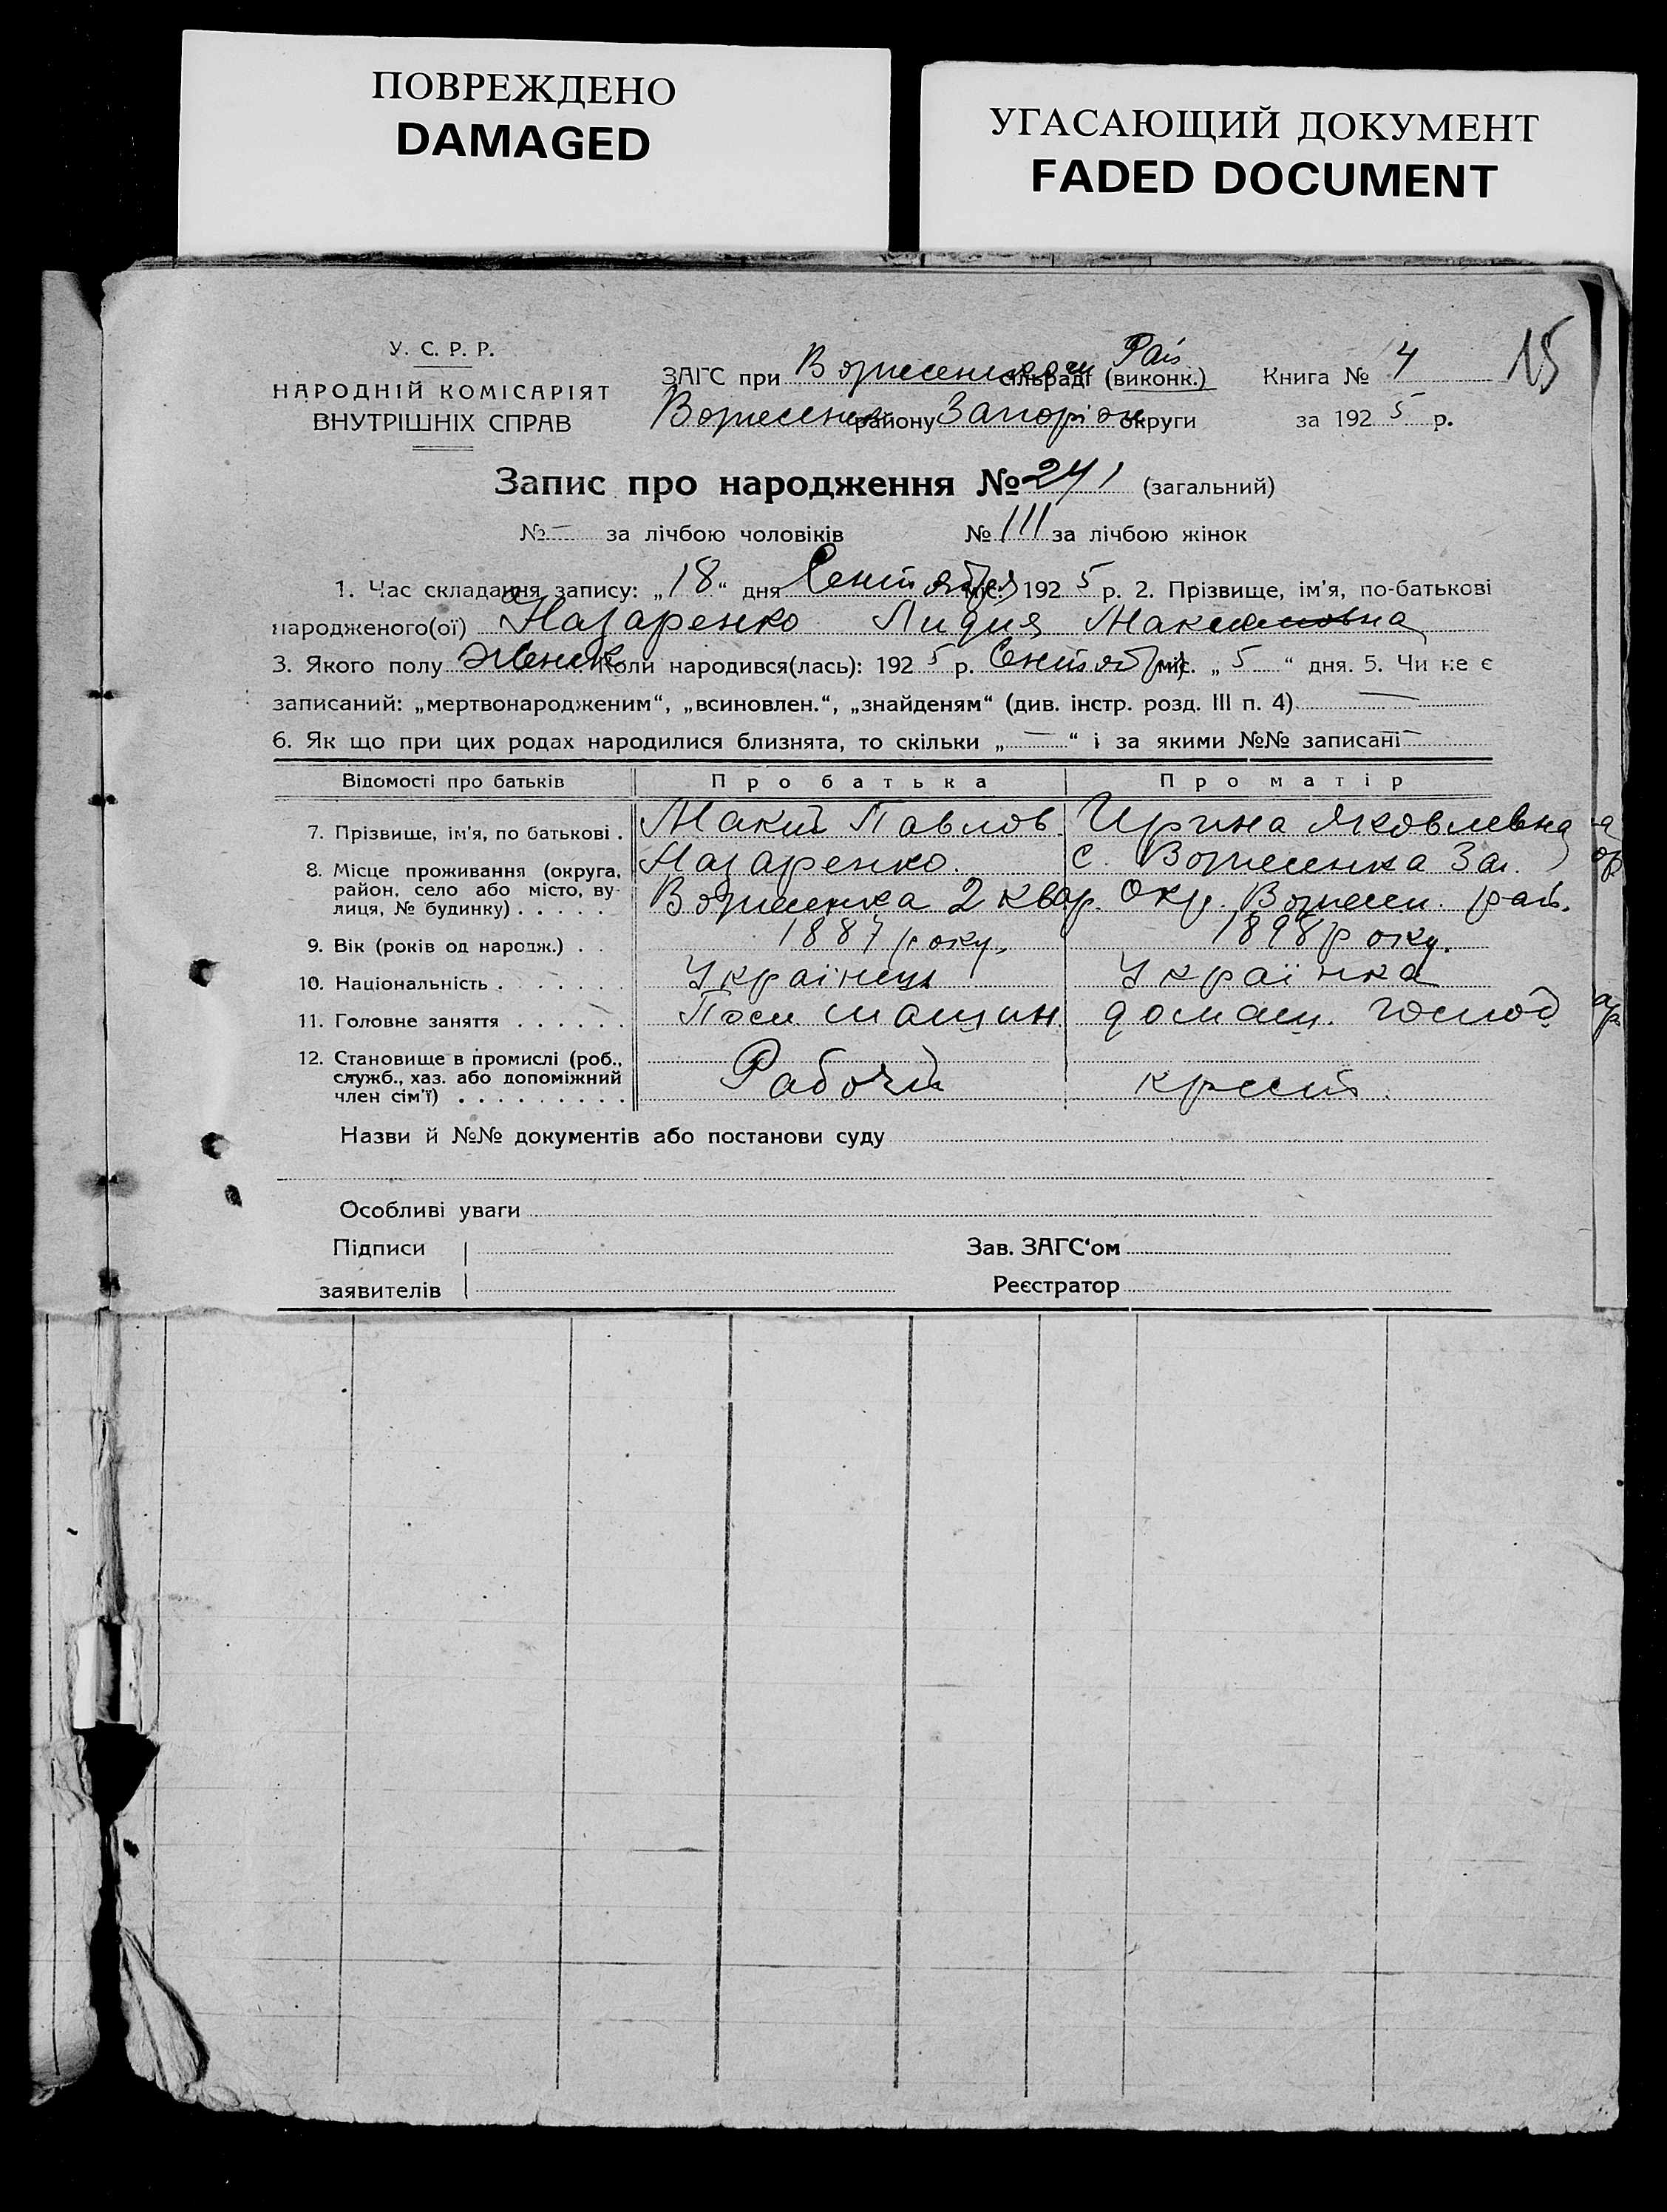 ПОВРЕЖДЕНО
DAMAGED
УГАСАЮЩИЙ ДОКУМЕНТ
FADED DOCUMENT
У. С. Р. Р.
НАРОДНІЙ КОМІСАРІЯТ
ВНУТРІШНІХ СПРАВ
ЗАГС при Вознесенском сільраді (виконк.) Раї
Вознесенск району Запоріж округи
Книга № 4
15
за 1925 р.
Запис про народження № 241 (загальний)
№ — за лічбою чоловіків № 111 за лічбою жінок
1. Час складання запису: „18“ дня Сентября міс. 1925 р. 2. Прізвище, ім'я, по-батькові
народженого(ої) Назаренко Лидия
3. Якого полу Женск Коли народився(лась): 1925 р. Сентября міс. „5“ дня. 5. Чи не є
записаний: „мертвонародженим“, „всиновлен.“, „знайденям“ (див. інстр. розд. III п. 4) —
6. Як що при цих родах народилися близнята, то скільки „—“ і за якими №№ записані —
Відомості про батьків Про батька Про матір
7. Прізвище, ім'я, по батькові . Павлов. Ирина Яковлевна
Назаренко. с. Вознесенка Зап.
8. Місце проживання (округа, район, село або місто, вулиця, № будинку) . . . . . Вознесенка 2 квар. Окр. Вознесен. рай.
9. Вік (років од народж.) . . 1887 року. 1898 року.
10. Національність . . . . . . . Українець Українка
11. Головне заняття . . . . . . машин. домаш. господ
12. Становище в промислі (роб., служб., хаз. або допоміжний член сім'ї) . . . . . . . . . Рабочий крест.
Назви й №№ документів або постанови суду
Особливі уваги
Підписи
заявителів
Зав. ЗАГС'ом
Реєстратор